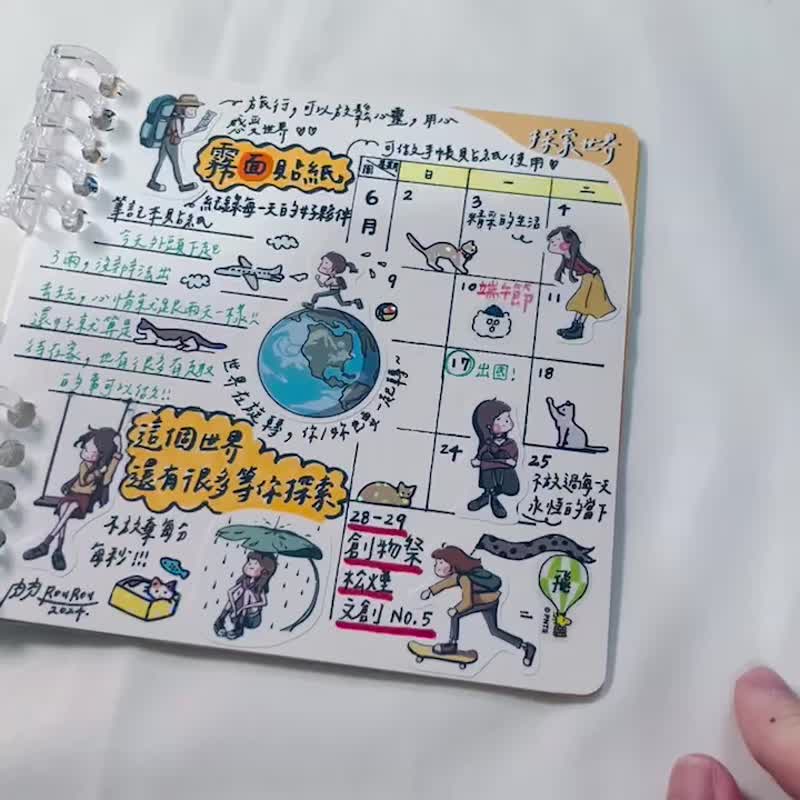 ~旅行,可以放鬆心靈,用心
感受世界♡♡
探索世界
霧面貼紙
可結文手帳貝占紙使用♥
筆記本貝占紙
紀錄每一天的好夥伴
今天外頭下起
了雨,沒辦法出
去玩,心情就跟雨天一樣!!
還好就算是
待在家,也有很多有趣
的事可以做!!
世界在旋轉,你/妳也要一起轉~
這個世界
還有很多等你探索
不放棄每分
每秒!!!
肉肉RouRou
2024.
週 星期 日 一 二
6月
2
3
精采的生活
4
9
10 端午節
11
17 出國!
18
24
25
不放過每一天
永恆的當下
28-29
創物祭
松煙
文創 No.5
飛
©PNTS